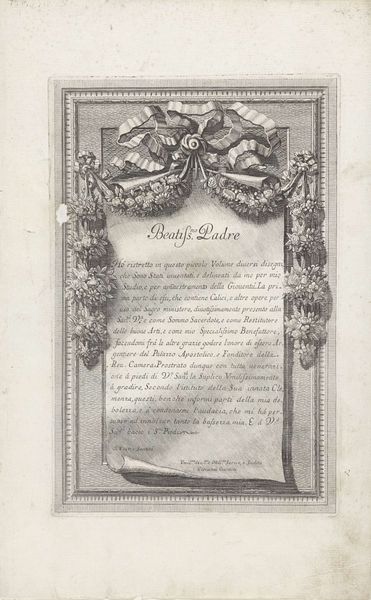 Beatiss.mo Padre
Ho ristretto in questo piccolo Volume diversi disegni,
che Sono Stati inventati, e delineati da me per mio
Studio, e per am̃aestramento della Gioventù. La pri=
ma parte di essi, che contiene Calici, e altre opere per
uso del Sagro ministero, divotissimamente presento alla
San.tà V.ra e come Sommo Sacerdote, e come Restitutore
delle buone Arti, e come mio Specialissimo Benefattore,
facendomi frà le altre grazie godere l'onore di essere Ar=
gentiere del Palazzo Apostolico, e Fonditore della
Rev. Camera. Prostrato dunque con tutta venerazi=
one à piedi di V.ra San.tà la Suplico Umilissimamente
à gradire, Secondo l'istituto della Sua innata Cle=
menza, questi, benche informi parti della mia de=
bolezza, e à condonarmi l'audacia, che mi hà per=
suaso ad innalzar tanto la bassezza mia. E à V.ra
San.tà bacio i S.mi Piedi
Umil.mo Servo, e Sudito
Giovanni Giardini